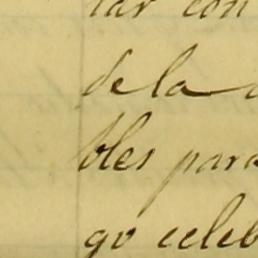 tar con
de la
bles para
go celeb